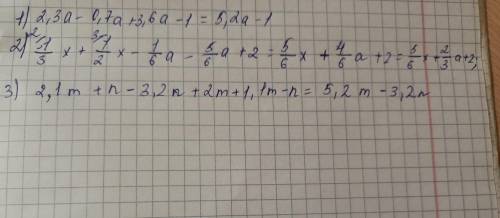 1) 2,3a - 0,7a + 3,6a - 1 = 5,2a - 1
2) ²⁾1/3 x + ³⁾1/2 x - 1/6 a - 5/6 a + 2 = 5/6 x + 4/6 a + 2 = 5/6 x + 2/3 a + 2;
3) 2,1m + n - 3,2n + 2m + 1,1m - n = 5,2m - 3,2n